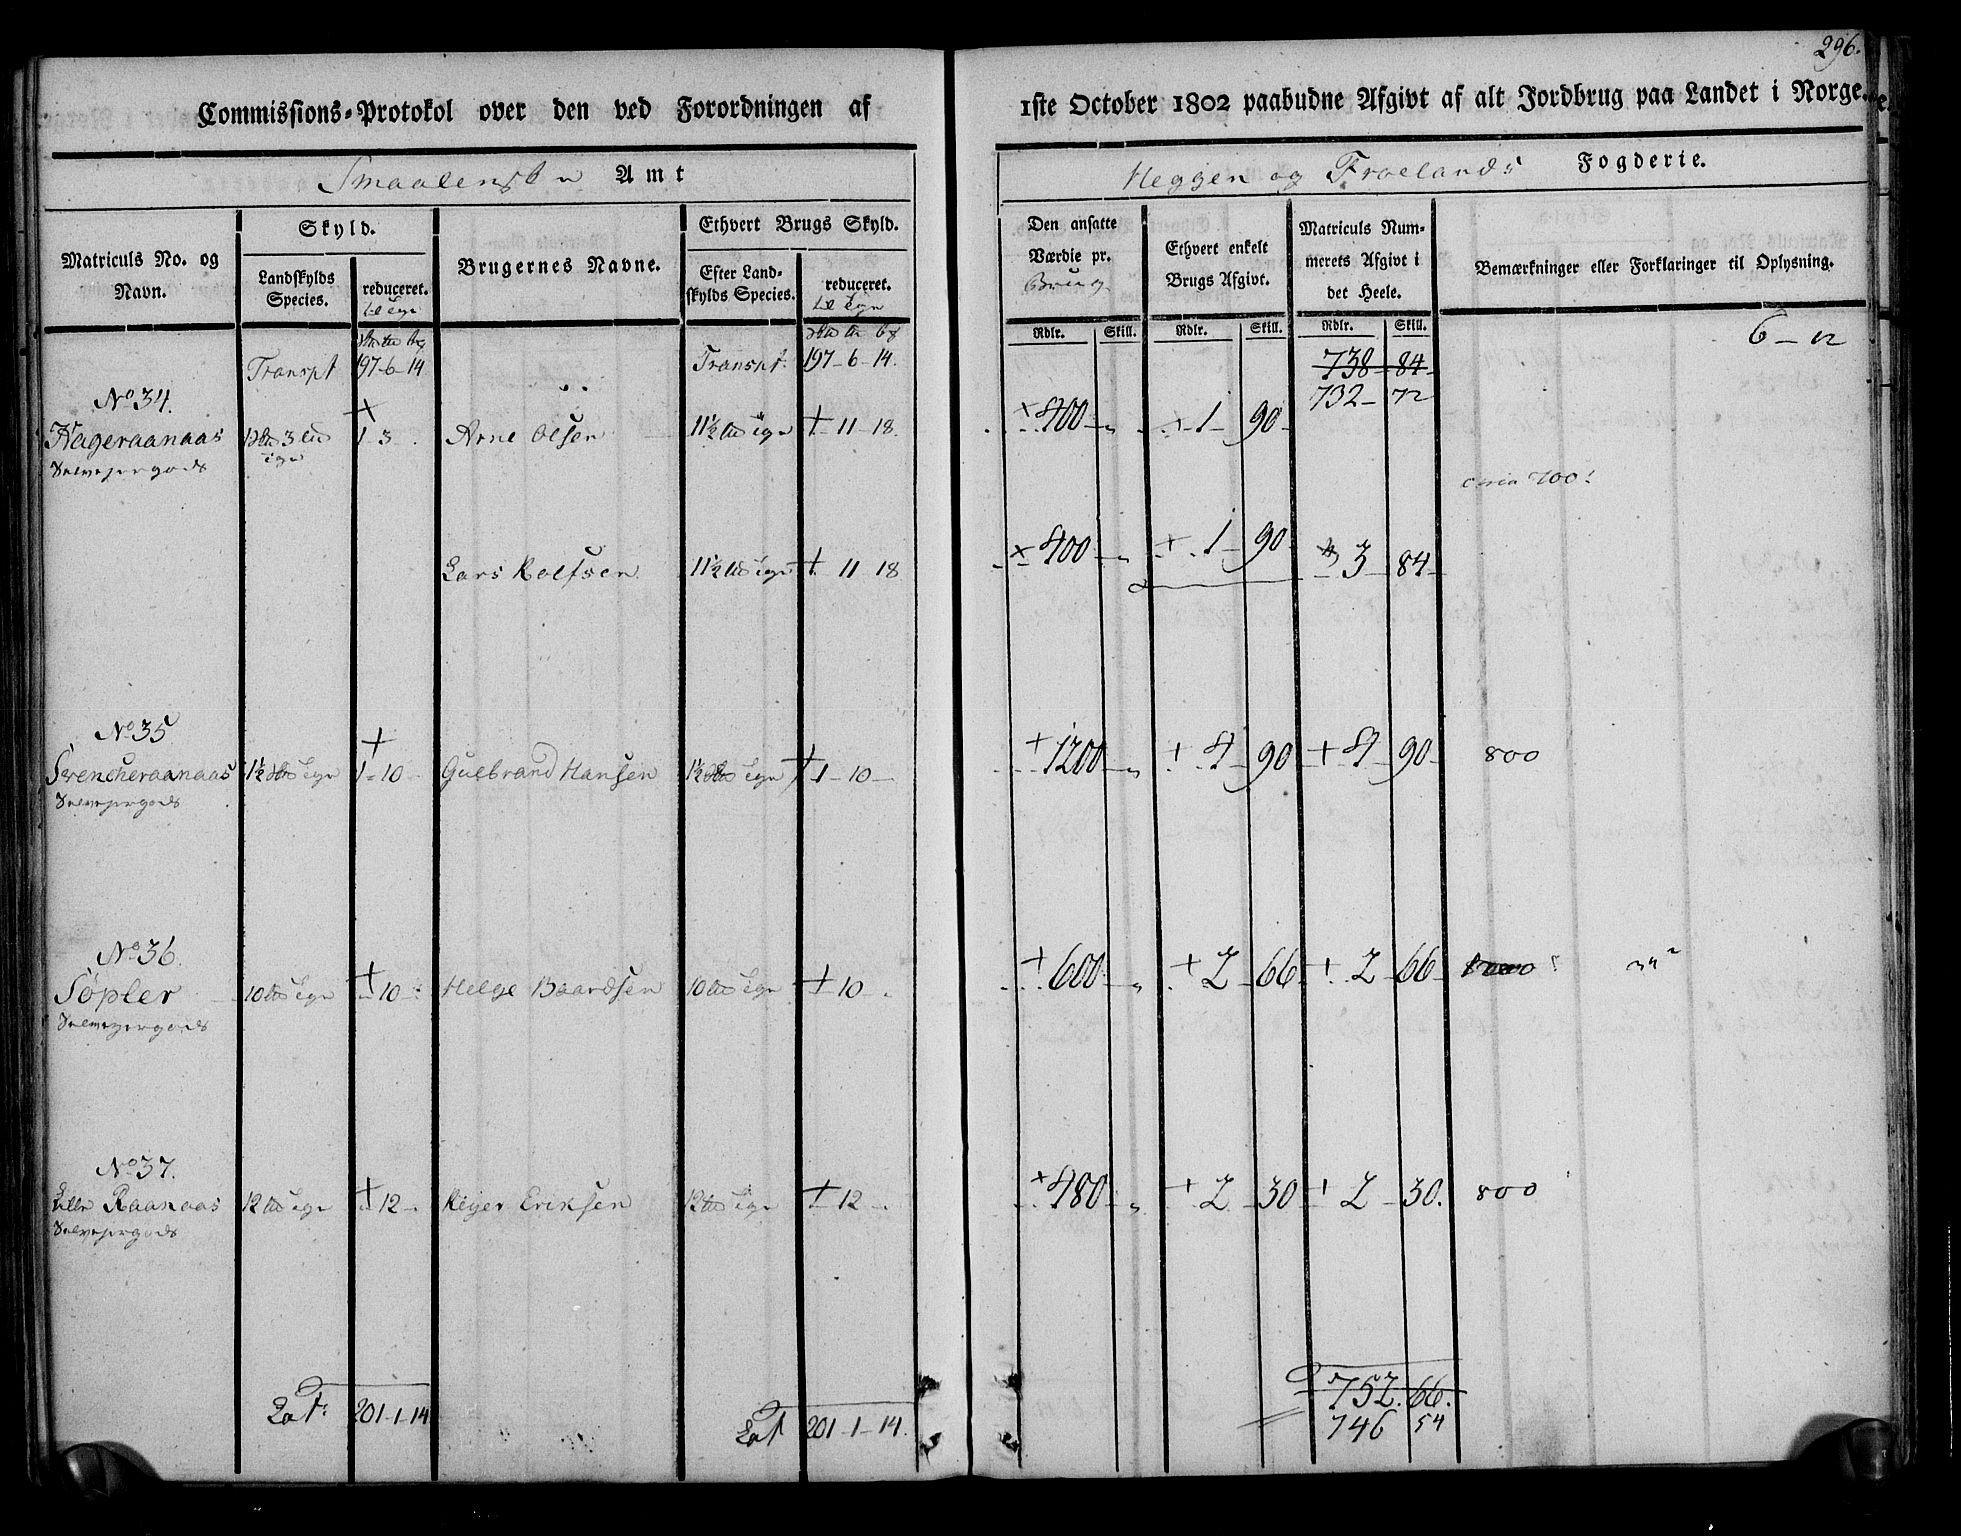 296.
Commissions-Protokol over den ved Forordningen af 1ste October 1802 paabudne Afgivt af alt Jordbrug paa Landet i Norge.
Smaalenske Amt
Heggen og Froelands Fogderie.
Matriculs No. og Navn.
Skyld.
Landskylds Species.
reduceret.
Brugernes Navne.
Ethvert Brugs Skyld.
Efter Landskylds Species.
reduceret.
Den ansatte Værdie pr. Brug
Ethvert enkelt Brugs Afgivt.
Matriculs Nummerets Afgivt i det Heele.
Bemærkninger eller Forklaringer til Oplysning.
Rdlr. Skill. Rdlr. Skill. Rdlr. Skill.
6 - 12
Transpt 197-6-14 Transpt. 197-6-14. 738-84
732-72
No 34.
Hageraanaas 3 1-3 Arne Olsen 11½ + 11-18. × 400 + 1-90
Selvejergods
circa 700
Lars Rolfsen 11½ + 11-18 × 400 + 1-90 3-84
No 35
Svencheraanaas 1½ + 1-10 Gulbrand Hansen 1½ + 1-10 + 1200 + 4-90 + 4-90 800
Selvejergods
No 36.
Sopler 10 + 10 Helge Baardsen 10 + 10 + 600 + 2-66 + 2-66
Selvejergods
No 37.
Lille Raanaas 12 + 12 Reyer Eriksen 12 + 12 + 480 + 2-30 + 2-30. 800
Selvejergods
Lat. 201-1-14 Lat 201-1-14. 752.66.
746 54